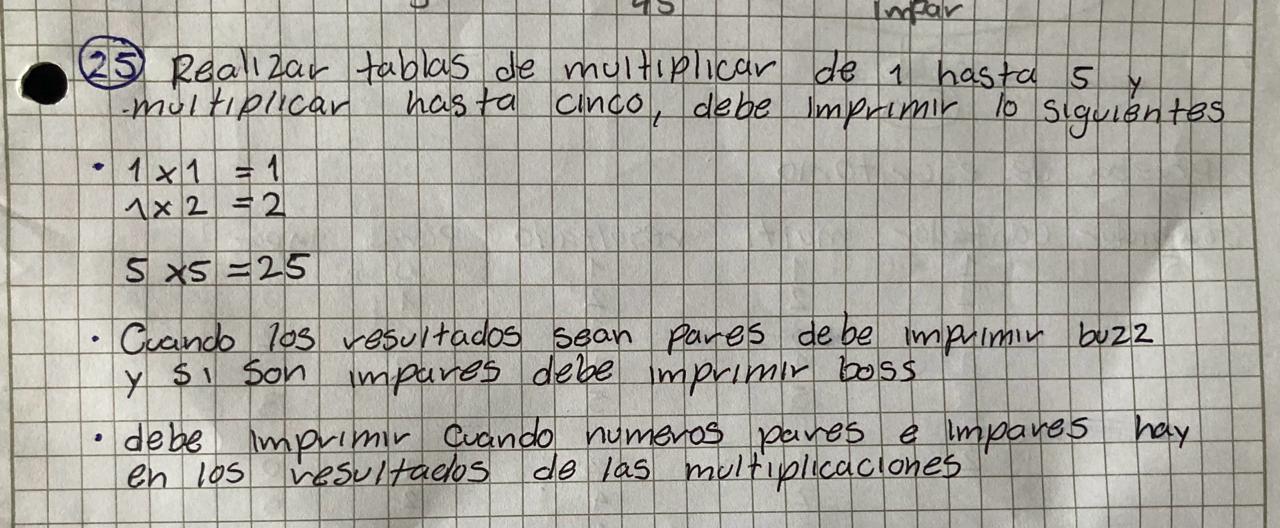 45 Impar
25 Realizar tablas de multiplicar de 1 hasta 5 y
multiplicar hasta cinco, debe imprimir lo siguientes
• 1 x 1 = 1
1 x 2 = 2
5 x 5 = 25
• Cuando los resultados sean pares debe imprimir buzz
y si son impares debe imprimir boss
• debe imprimir cuando numeros pares e impares hay
en los resultados de las multiplicaciones